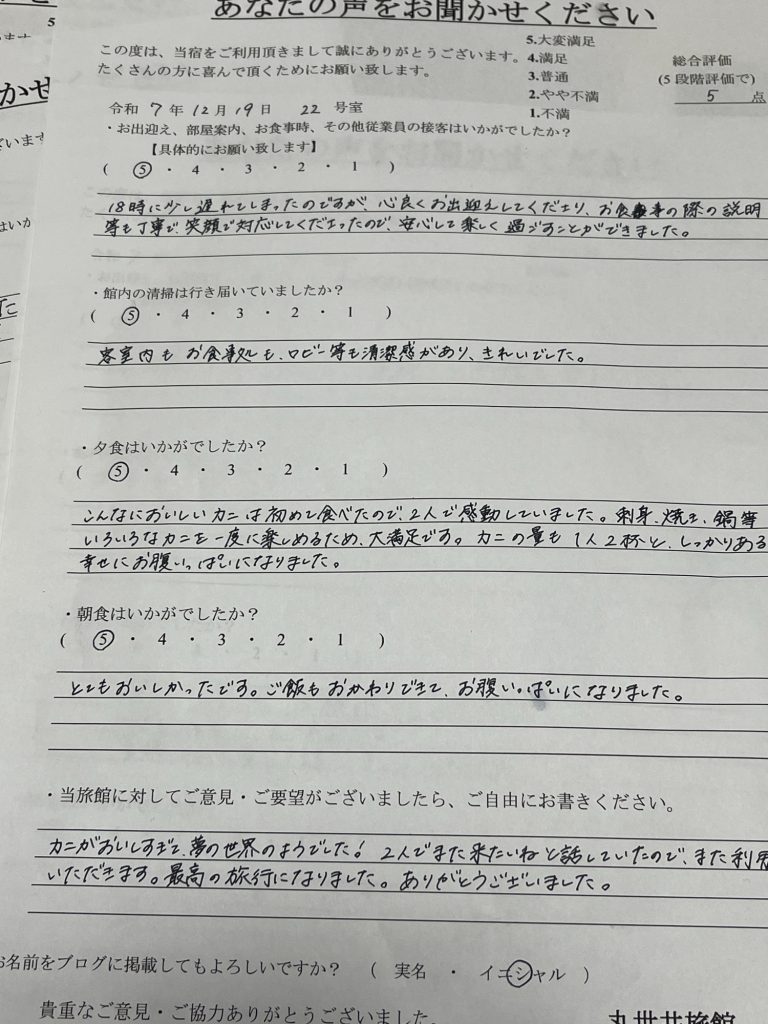 あなたの声をお聞かせください
この度は、当宿をご利用頂きまして誠にありがとうございます。
たくさんの方に喜んで頂くためにお願い致します。
5.大変満足
4.満足
3.普通
2.やや不満
1.不満
総合評価
(5段階評価で)
5 点
令和 7 年 12 月 19 日 22 号室
・お出迎え、部屋案内、お食事時、その他従業員の接客はいかがでしたか？
【具体的にお願い致します】
( 5 ・ 4 ・ 3 ・ 2 ・ 1 )
18時に少し遅れてしまったのですが、心良くお出迎えしてくださり、お食事の際の説明
等も丁寧で、笑顔で対応してくださったので、安心して楽しく過ごすことができました。
・館内の清掃は行き届いていましたか？
( 5 ・ 4 ・ 3 ・ 2 ・ 1 )
客室内もお食事処も、ロビー等も清潔感があり、きれいでした。
・夕食はいかがでしたか？
( 5 ・ 4 ・ 3 ・ 2 ・ 1 )
こんなにおいしいカニは初めて食べたので、2人で感動していました。刺身、焼き、鍋等
いろいろなカニを一度に楽しめるため、大満足です。カニの量も1人2杯と、しっかりある
幸せにお腹いっぱいになりました。
・朝食はいかがでしたか？
( 5 ・ 4 ・ 3 ・ 2 ・ 1 )
とてもおいしかったです。ご飯もおかわりできて、お腹いっぱいになりました。
・当旅館に対してご意見・ご要望がございましたら、ご自由にお書きください。
カニがおいしすぎて、夢の世界のようでした！ 2人でまた来たいねと話していたので、また利用
いただきます。最高の旅行になりました。ありがとうございました。
お名前をブログに掲載してもよろしいですか？ ( 実名 ・ イニシャル )
貴重なご意見・ご協力ありがとうございました。
丸世井旅館